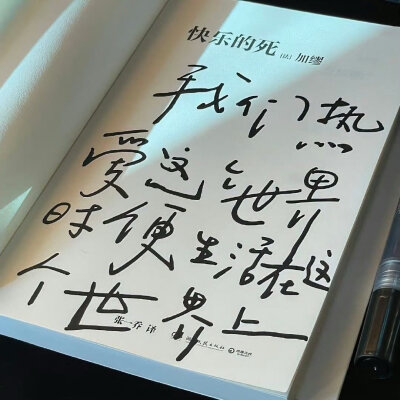 快乐的死 [法] 加缪
我们热
爱这世界
时便生活在这
个世界上
张一乔 译